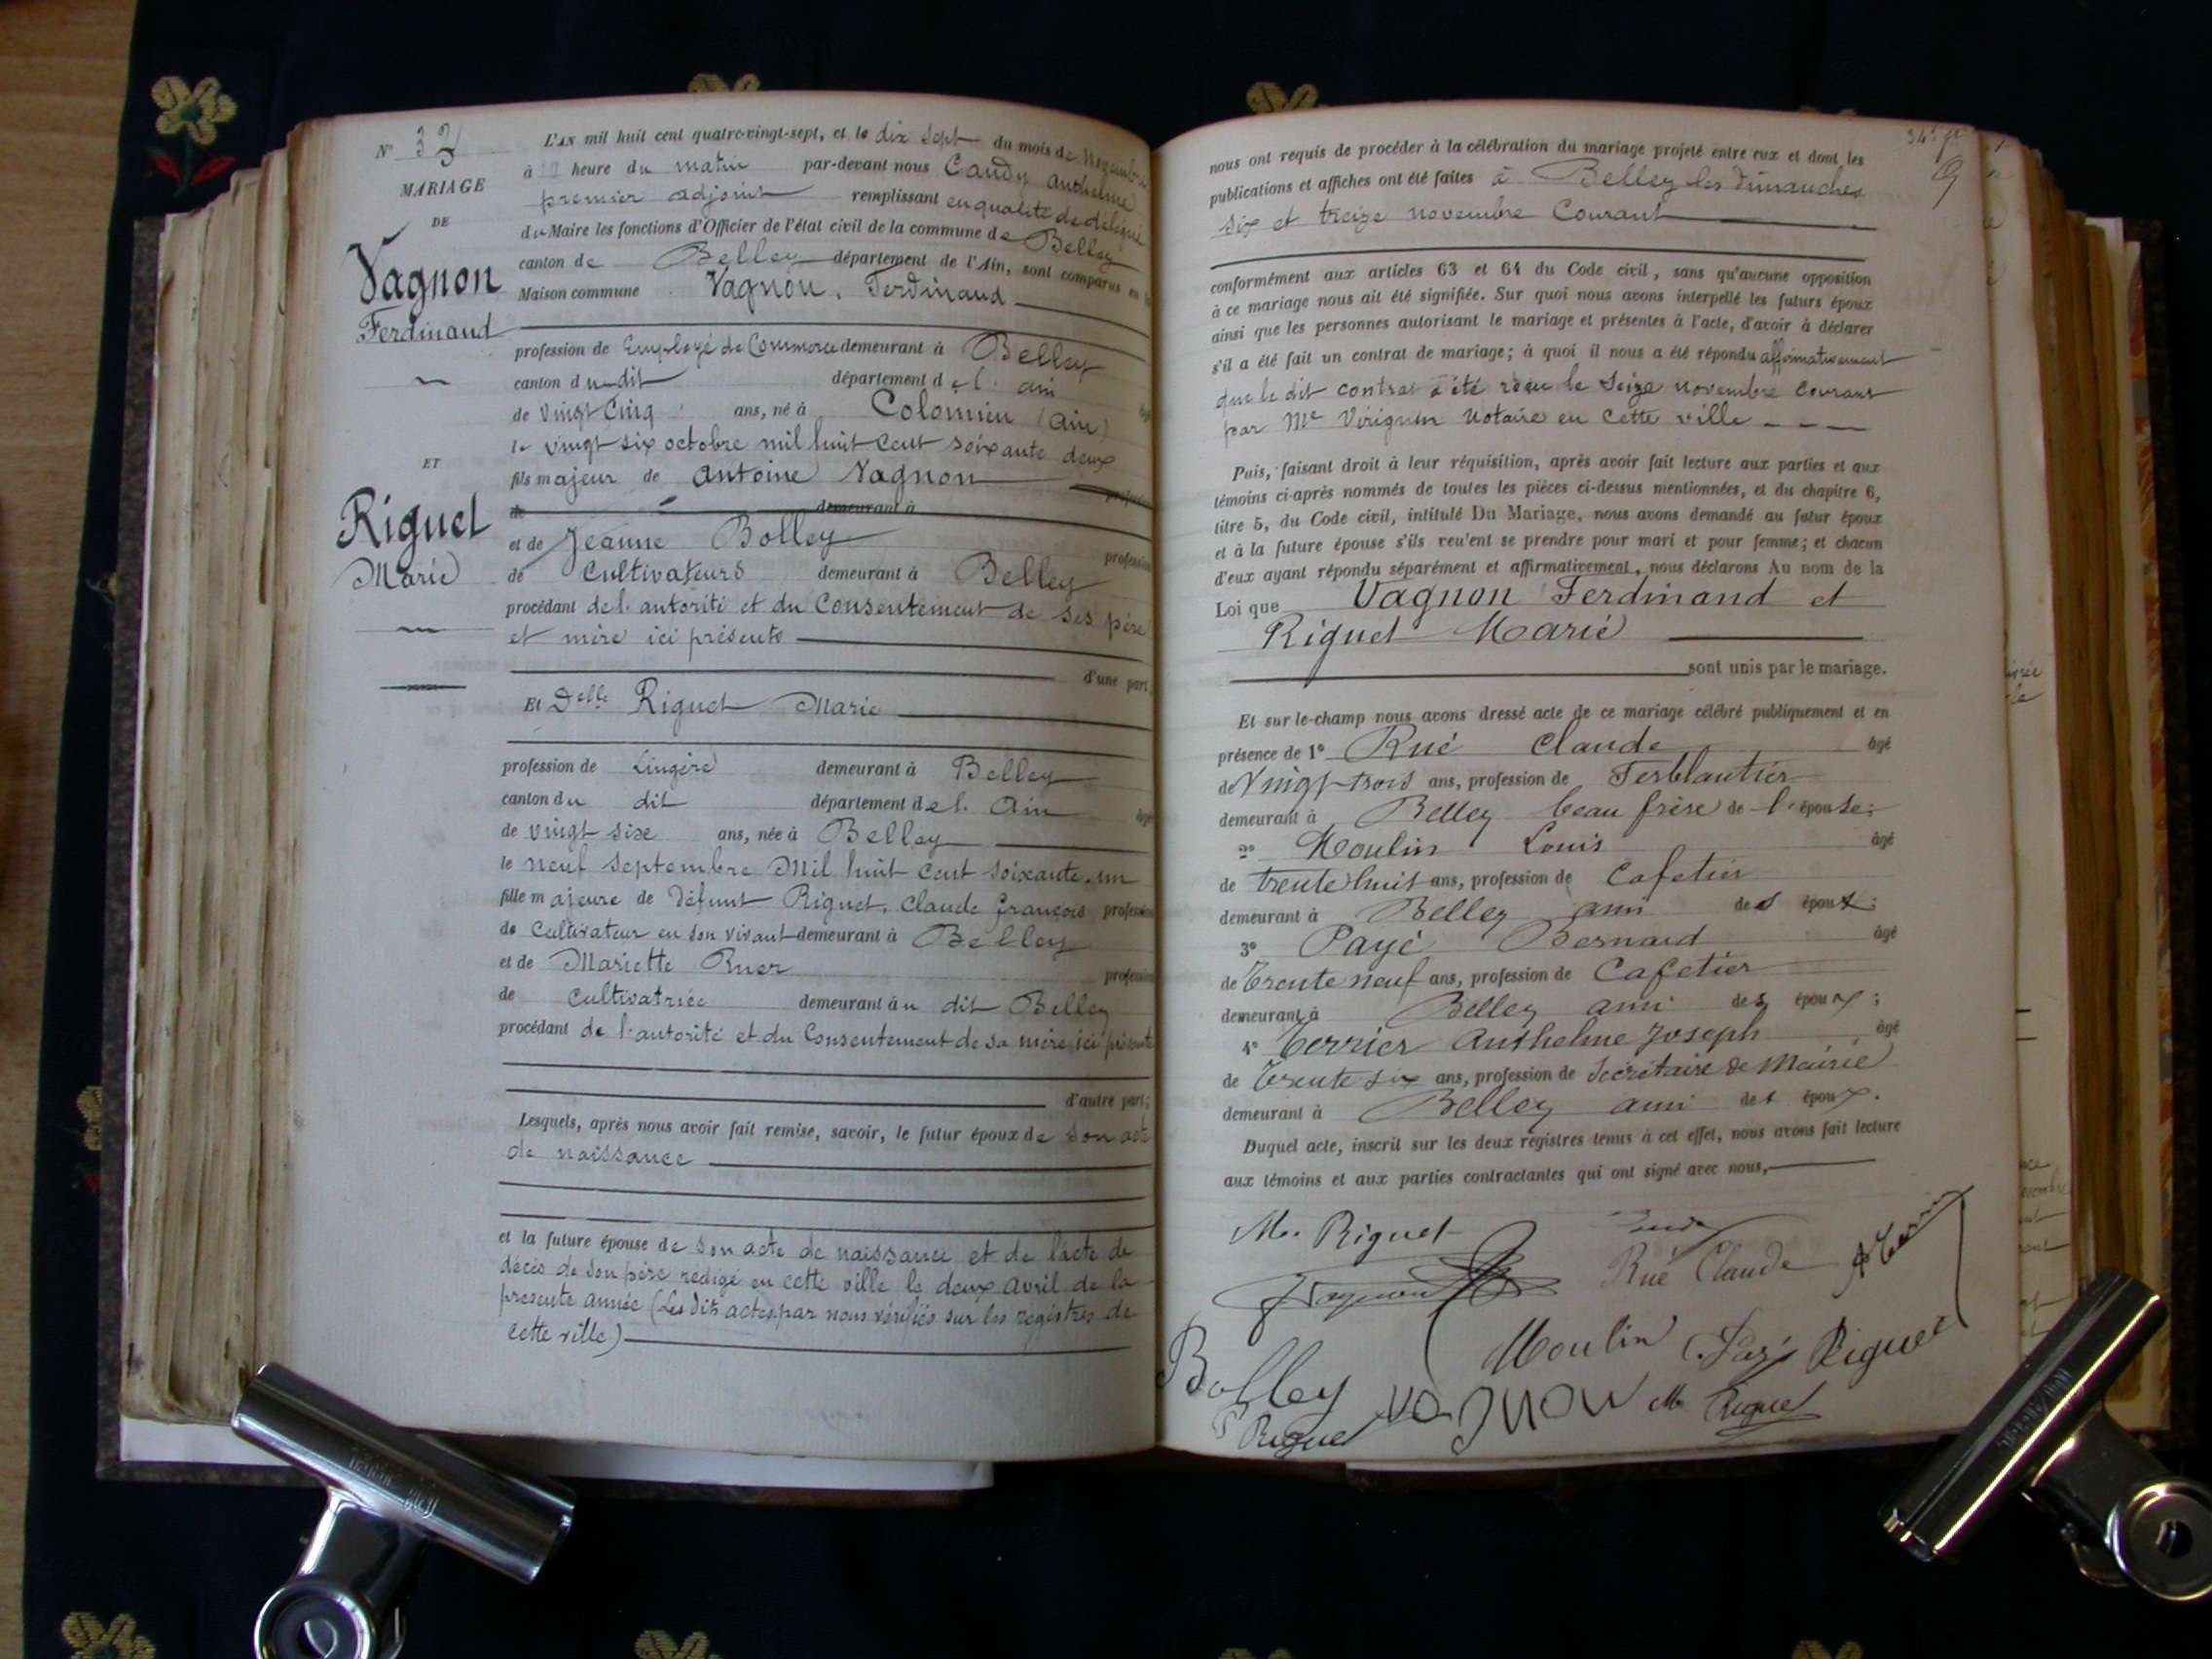 N° 32
MARIAGE
DE
Vagnon
Ferdinand
ET
Riguet
Marie
L'AN mil huit cent quatre-vingt-sept, et le dix sept du mois de Novembre
à heure du matin par-devant nous Candy anthelme
premier adjoint remplissant en qualité de délégué
du Maire les fonctions d'Officier de l'état civil de la commune de Belley
canton de Belley département de l'Ain, sont comparus en la
Maison commune Vagnon, Ferdinand
profession de Employé de Commerce demeurant à Belley
canton du dit département de l'ain
de vingt cinq ans, né à Colomieu (ain)
le vingt six octobre mil huit cent soixante deux
fils majeur de antoine Vagnon profession
de demeurant à
et de Jeanne Bolley profession
de Cultivateurs demeurant à Belley
procédant de l'autorité et du Consentement de ses père
et mère ici présents
d'une part;
Et Delle Riguet Marie
profession de Lingère demeurant à Belley
canton du dit département de l'Ain âgé
de vingt six ans, née à Belley
le neuf Septembre Mil huit cent soixante-un
fille majeure de défunt Riguet, Claude françois profession
de Cultivateur en son vivant demeurant à Belley
et de Mariette profession
de Cultivatrice demeurant au dit Belley
procédant de l'autorité et du Consentement de sa mère ici présente
d'autre part;
Lesquels, après nous avoir fait remise, savoir, le futur époux de son acte
de naissance
et la future épouse de son acte de naissance et de l'acte de
décès de son père rédigé en cette ville le deux avril de la
présente année (Les dits actes par nous vérifiés sur les registres de
cette ville)
nous ont requis de procéder à la célébration du mariage projeté entre eux et dont les
publications et affiches ont été faites à Belley les dimanches
six et treize novembre Courant
conformément aux articles 63 et 64 du Code civil, sans qu'aucune opposition
à ce mariage nous ait été signifiée. Sur quoi nous avons interpellé les futurs époux
ainsi que les personnes autorisant le mariage et présentes à l'acte, d'avoir à déclarer
s'il a été fait un contrat de mariage; à quoi il nous a été répondu affirmativement
que le dit contrat a été reçu le Seize novembre Courant
par Me Notaire en cette ville
Puis, faisant droit à leur réquisition, après avoir fait lecture aux parties et aux
témoins ci-après nommés de toutes les pièces ci-dessus mentionnées, et du chapitre 6,
titre 5, du Code civil, intitulé Du Mariage, nous avons demandé au futur époux
et à la future épouse s'ils veulent se prendre pour mari et pour femme; et chacun
d'eux ayant répondu séparément et affirmativement, nous déclarons Au nom de la
Loi que Vagnon Ferdinand et
Riguet Marie
sont unis par le mariage.
Et sur-le-champ nous avons dressé acte de ce mariage célébré publiquement et en
présence de 1° Rué Claude âgé
de Vingt-trois ans, profession de Ferblantier
demeurant à Belley beau frère de l'épouse;
2° Moulin Louis âgé
de trente huit ans, profession de Cafetier
demeurant à Belley ami des époux;
3° Payé Bernard âgé
de Trente neuf ans, profession de Cafetier
demeurant à Belley ami des époux;
4° Terrier Anthelme Joseph âgé
de Trente six ans, profession de Secrétaire de Mairie
demeurant à Belley ami des époux.
Duquel acte, inscrit sur les deux registres tenus à cet effet, nous avons fait lecture
aux témoins et aux parties contractantes qui ont signé avec nous,
M. Riguet
Rué Claude
Vagnon
Moulin Payé Riguet
Bolley vagnon M Riguet
Riguet